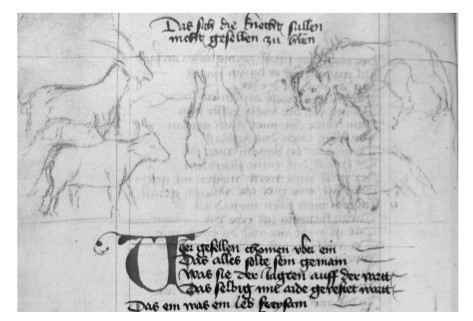 Das sich die knecht sullen
nicht gesellen zu
gesellen chomen vber ein
Das alles solte sein gemain
Was sie der iagten auff der
Das selbig mit aide
Das ein was ein leb freysam